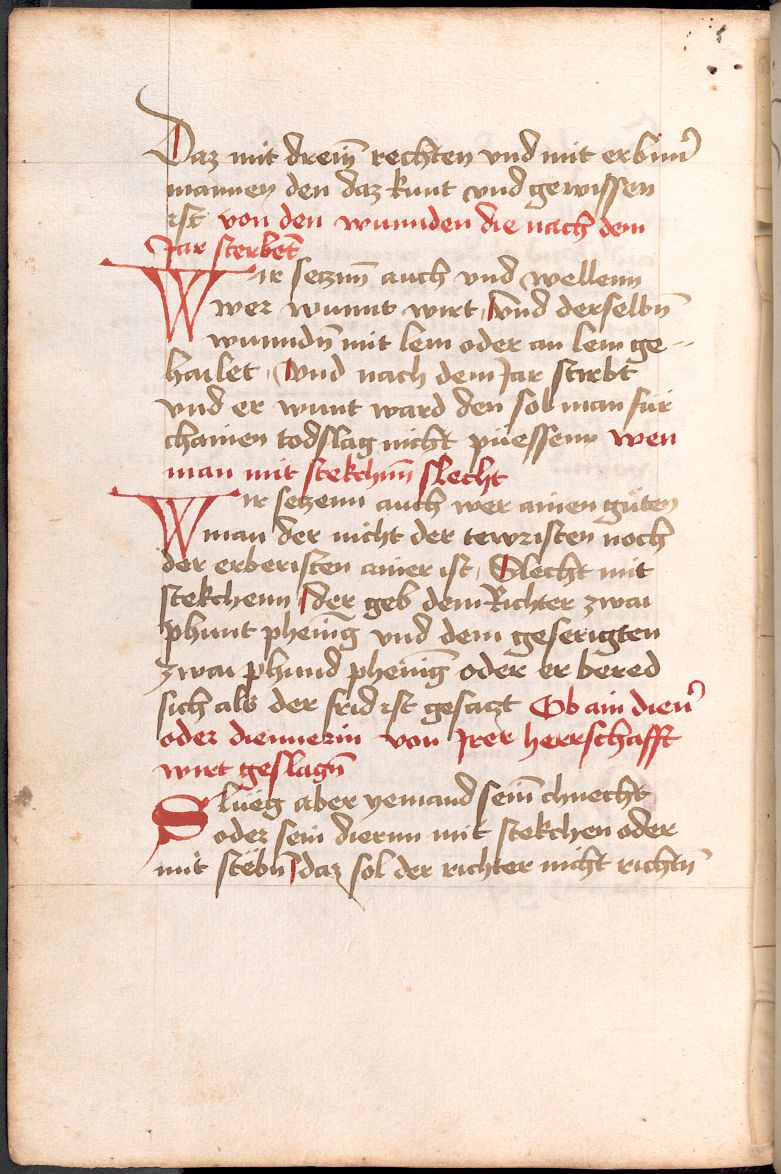 Daz mit dreiñ rechten vnd mit erbırñ
mannen den daz kunt vnd gewissen
ist von den wunnden die nach dem
Jar sterbet̄
Wir seczen̄ auch vnd wellenn
wer wunnt wirt / Vnd derselbn̄
wunndn̄ mit lem oder an lem ge-
hailet / Vnd nach dem Jar stirbt
vnd er wunt ward den sol man für
chainen todslag nicht püessenn wen
man mit stekchen̄ slecht
Wir seczenn auch wer ainen güten
man der nicht der tewristen noch
der erberisten ainer ist / Slecht mit
stekchenn / der geb dem Richter zwai
phunt phenīg vnd dem geserigten
zwai phund phenīg oder er bered
sich als der frid ist gesaczt Ob ain dien̄
oder diennerin von Irer herrschafft
wirt geslagn̄
Slüeg aber yemand sein̄ chnecht
oder sein diernn mit stekchen oder
mit stebn̄ / daz sol der richter nicht richtn̄